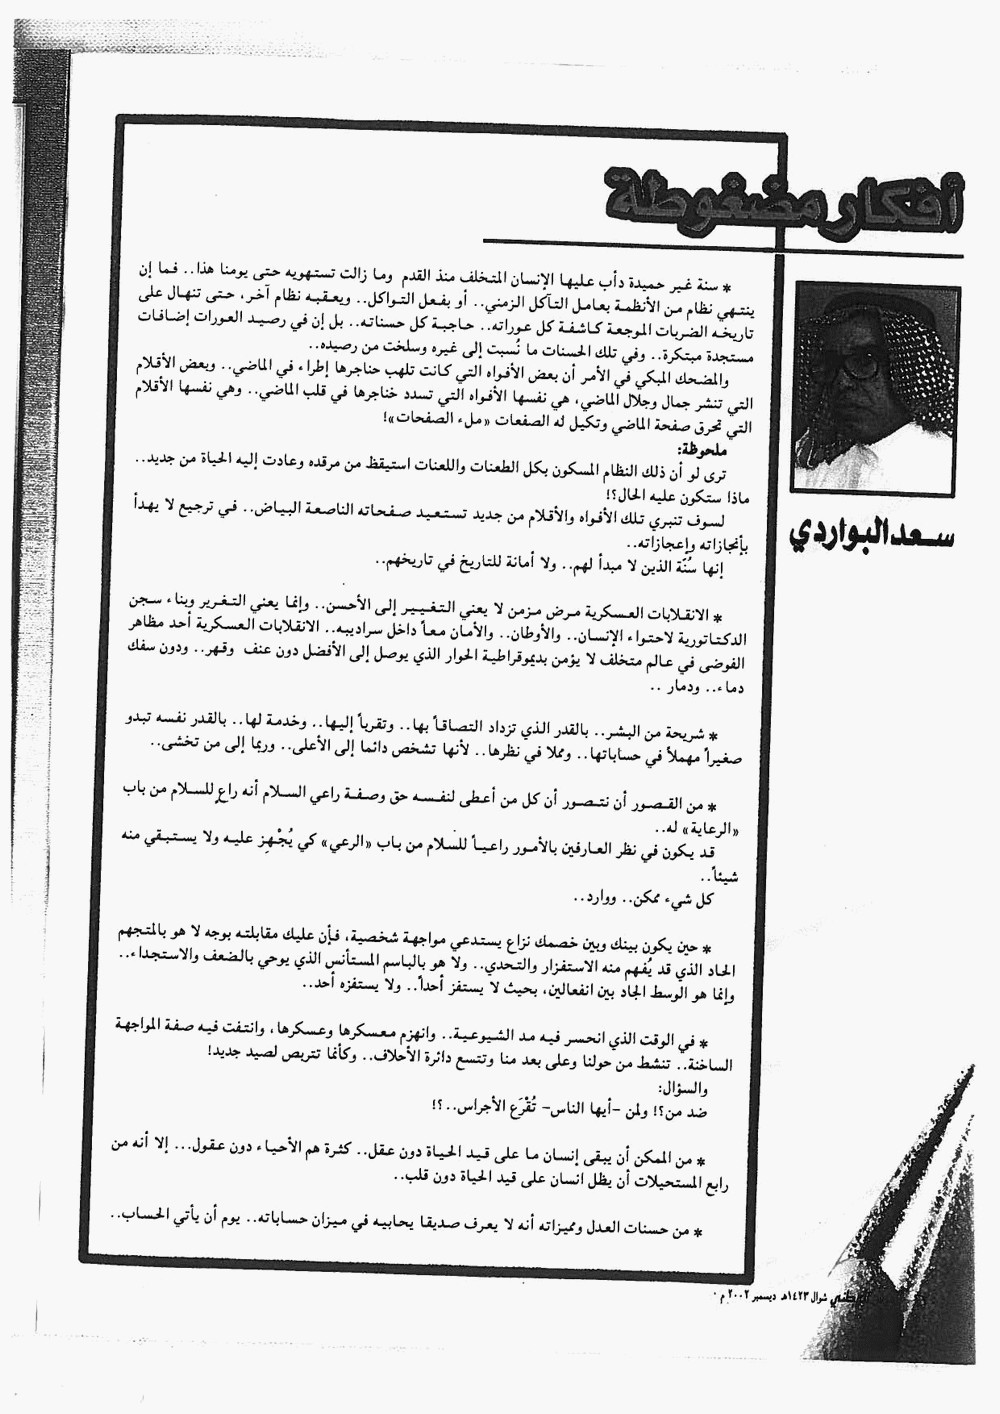 أفكار مضغوطة
سعد البواردي
* سنة غير حميدة دأب عليها الإنسان المتخلف منذ القدم وما زالت تستهويه حتى يومنا هذا.. فما إن
ينتهي نظام من الأنظمة بعامل التآكل الزمني.. أو بفعل التواكل.. ويعقبه نظام آخر، حتى تنهال على
تاريخه الضربات الموجعة كاشفة كل عوراته.. حاجبة كل حسناته.. بل إن في رصيد العورات إضافات
مستجدة مبتكرة.. وفي تلك الحسنات ما نُسبت إلى غيره وسلخت من رصيده..
والمضحك المبكي في الأمر أن بعض الأفواه التي كانت تلهب حناجرها إطراء في الماضي.. وبعض الأقلام
التي تنشر جمال وجلال الماضي، هي نفسها الأفواه التي تسدد خناجرها في قلب الماضي.. وهي نفسها الأقلام
التي تحرق صفحة الماضي وتكيل له الصفعات «ملء الصفحات»!
ملحوظة:
ترى لو أن ذلك النظام المسكون بكل الطعنات واللعنات استيقظ من مرقده وعادت إليه الحياة من جديد..
ماذا ستكون عليه الحال؟!
لسوف تنبري تلك الأفواه والأقلام من جديد تستعيد صفحاته الناصعة البياض.. في ترجيع لا يهدأ
بأنجازاته وإعجازاته..
إنها سُنّة الذين لا مبدأ لهم.. ولا أمانة للتاريخ في تاريخهم..
* الانقلابات العسكرية مرض مزمن لا يعني التغيير إلى الأحسن.. وإنما يعني التغرير وبناء سجن
الدكتاتورية لاحتواء الإنسان.. والأوطان.. والأمان معاً داخل سراديبه.. الانقلابات العسكرية أحد مظاهر
الفوضى في عالم متخلف لا يؤمن بديموقراطية الحوار الذي يوصل إلى الأفضل دون عنف وقهر.. ودون سفك
دماء.. ودمار ..
* شريحة من البشر.. بالقدر الذي تزداد التصاقاً بها.. وتقرباً إليها.. وخدمة لها.. بالقدر نفسه تبدو
صغيراً مهملاً في حساباتها.. ومملا في نظرها.. لأنها تشخص دائما إلى الأعلى.. وربما إلى من تخشى..
* من القصور أن نتصور أن كل من أعطى لنفسه حق وصفة راعي السلام أنه راعٍ للسلام من باب
«الرعاية» له..
قد يكون في نظر العارفين بالأمور راعياً للسلام من باب «الرعي» كي يُجْهِز عليه ولا يستبقي منه
شيئاً..
كل شيء ممكن.. ووارد..
* حين يكون بينك وبين خصمك نزاع يستدعي مواجهة شخصية، فأن عليك مقابلته بوجه لا هو بالمتجهم
الحاد الذي قد يُفهم منه الاستفزاز والتحدي.. ولا هو بالباسم المستأنس الذي يوحي بالضعف والاستجداء..
وإنما هو الوسط الجاد بين انفعالين، بحيث لا يستفز أحداً.. ولا يستفزه أحد..
* في الوقت الذي انحسر فيه مد الشيوعية.. وانهزم معسكرها وعسكرها، وانتفت فيه صفة المواجهة
الساخنة.. تنشط من حولنا وعلى بعد منا وتتسع دائرة الأحلاف.. وكأنما تتربص لصيد جديد!
والسؤال:
ضد من؟! ولمن -أيها الناس- تُقْرَع الأجراس..؟!
* من الممكن أن يبقى إنسان ما على قيد الحياة دون عقل.. كثرة هم الأحياء دون عقول... إلا أنه من
رابع المستحيلات أن يظل انسان على قيد الحياة دون قلب..
* من حسنات العدل ومميزاته أنه لا يعرف صديقا يحابيه في ميزان حساباته.. يوم أن يأتي الحساب..
شوال ١٤٢٣هـ ديسمبر ٢٠٠٢ م